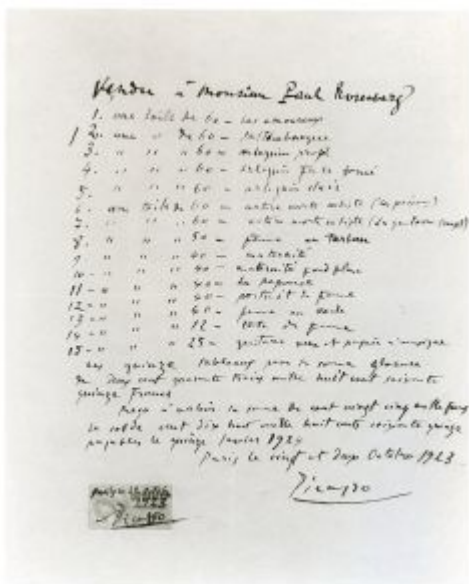 Vendu à Monsieur Paul Rosenberg
1. une toile de 60 - les amoureux
2. une " de 60 - saltimbanque
3. " " " 60 - arlequin profil
4. " " " 60 - arlequin
5. " " 60 - arlequin
6. une toile de 60 - nature morte cubiste
7. " " " 60 - nature morte cubiste
8. " " " 50 - femme au turban
9. " " " 40 - maternité
10 - " " " 40 - maternité fond
11 - " " " 40 - la réponse
12 - " " " 40 - portrait de femme
13 - " " " 60 - femme au voile
14 - " " " 12 - tête de femme
15 - " " " 25 - guitare
Les quinze tableaux pour la somme
de deux cent quarante trois mille huit cent soixante
quinze francs
Reçu la somme de cent vingt cinq mille francs
le solde cent dix huit mille huit cents soixante quinze
payables le quinze Janvier 1924
Paris le vingt et deux Octobre 1923
Picasso
1923
Picasso